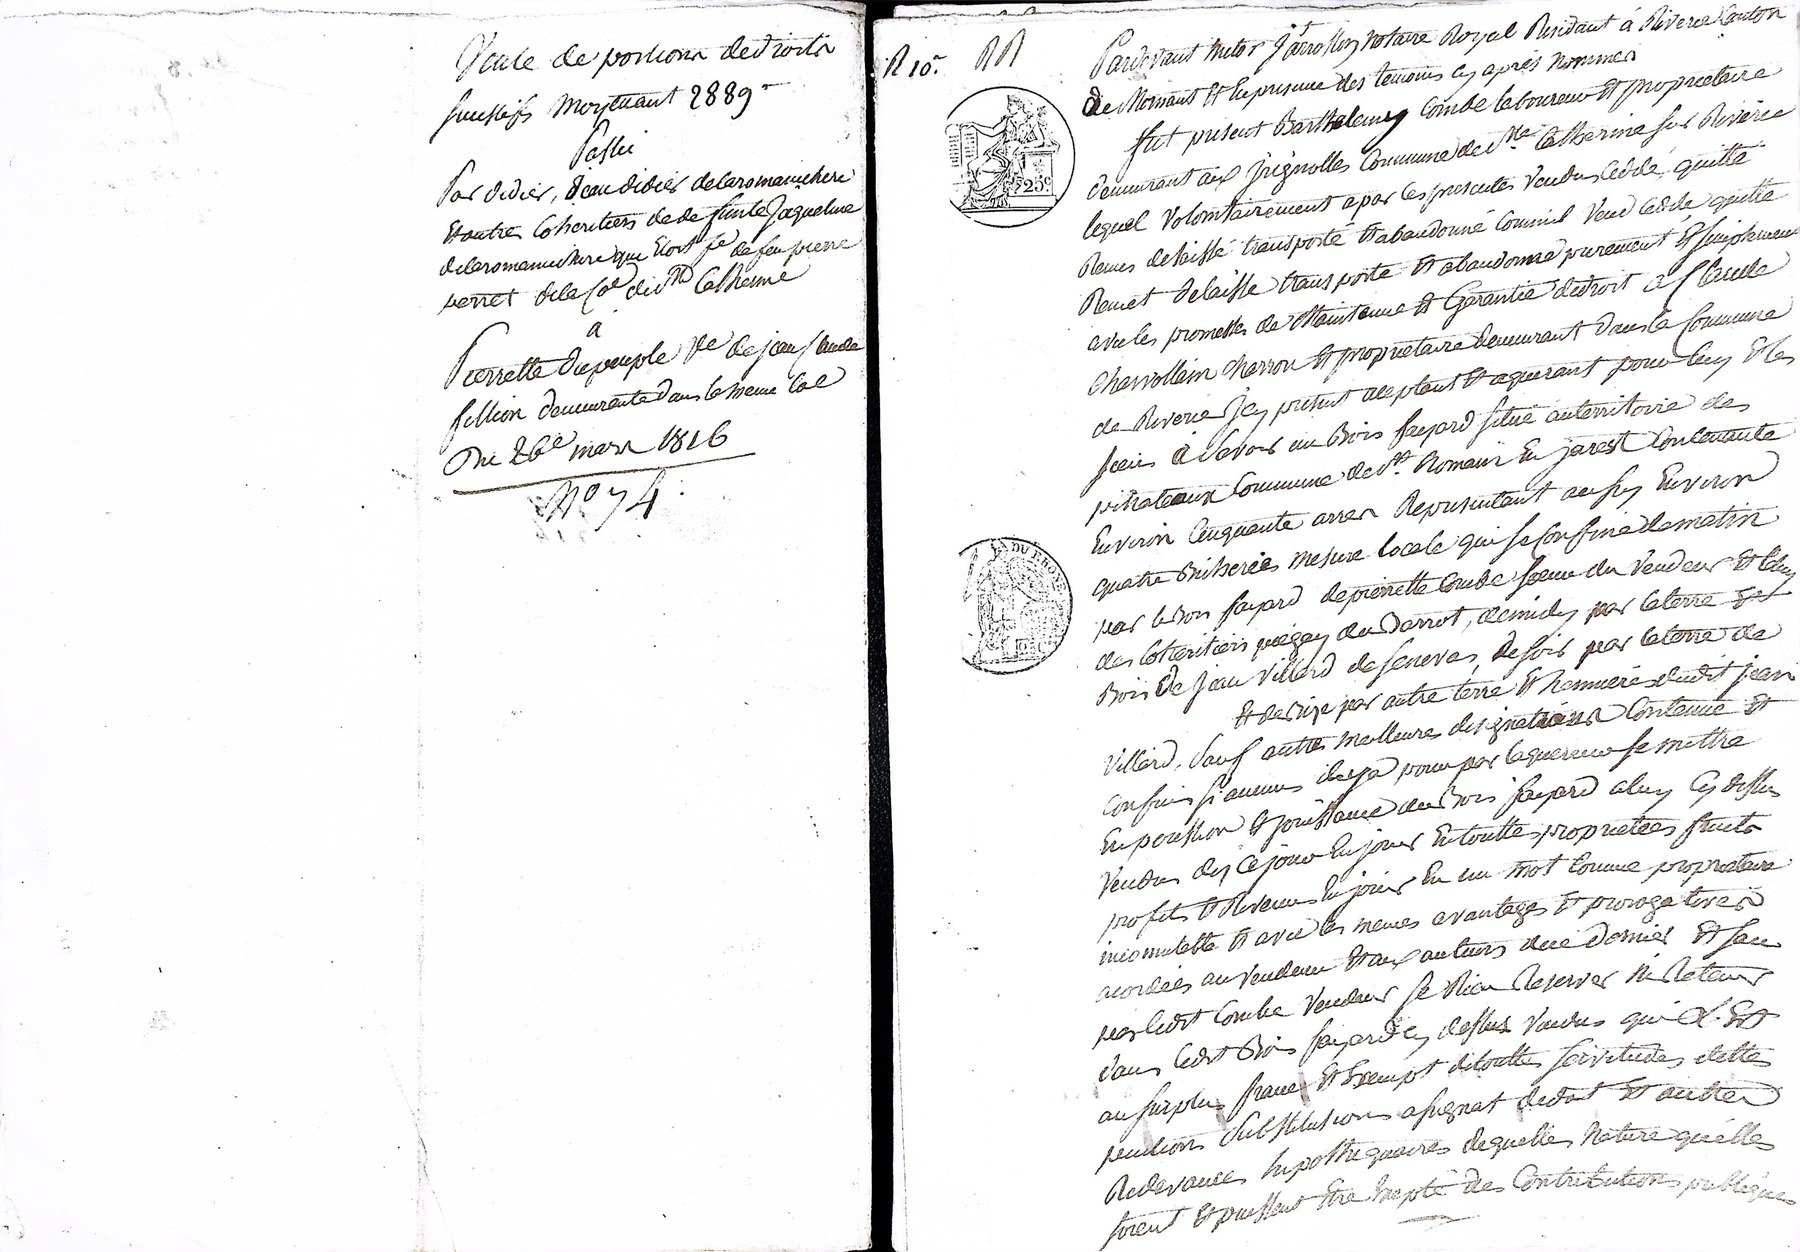 Vente de portions de droits
sucessifs moyenant 2889
Passée
Par didier, Jean didier delaromanichere
et autres coheritiers de defunte Jaqueline
delaromanichere que vivoit fe de feu pierre
perret de la Coe de Ste Catherine
à
Pierrette dupeuple Ve de Jean Claude
fillion demeurante dans la meme Coe
Du 26e mars 1816
No 74.
R 10.
RR
Pardevant Mtor Jarrosson Notaire Royal Residant à Riverie Canton
de Mornant et En presence des temoins cy après nommés
fut present Barthelemy Combe laboureur et proprietaire
demeurant aux Jrignolles Commune de Ste Catherine sur Riverie
lequel volontairement a par ces presentes vendu, cedde, quitte
Remis delaissé transporté et abandonné comme il vend cedde quitte
Remet delaisse transporte et abandonne purement et simplement
avec les promesses de Maintenue et Garantie de droit à Claude
Charvollein Charron et proprietaire demeurant dans la Commune
de Riverie Jcy present aceptant et aquerant pour luy et les
siens à savoir un Bois fayard situé au territoire des
Commune de St Romain En Jarest Contenante
Environ Cinquante arres Representant aussy Environ
quatre Bicherées mesure locale qui se Confine de matin
par le Bois fayard de pierrette Combe soeur du vendeur et celuy
des Coheritiers piegay du Darrot, de midy par la terre et
Bois de Jean Villard de seneves, de soir par la terre de
et de bize par autre terre et hermière dudit Jean
Villard, sauf autres meilleures designations Contenue et
Confins si aucuns il y a pour par laquereur se mettre
En possession et jouissance du Bois fayard a luy cy dessus
Vendu des Ce jour En jouir En toutte proprietées fruits
profits et Revenus En jouir En un mot comme proprietaire
incomutable et avec les memes avantages et prorogatives
acordées au vendeur et aux auteurs du ce dernier et sans
par ledit Combe vendeur se Rien Reserver ni Retenir
dans ledit Bois fayard cy dessus vendu qui Est
au surplus franc et Exempt de toutte servitudes dette
pention substitution assignat dedot et autres
Redevances hypothequaires de quelles Nature quelles
soient et puissent être Exepté des Contributions publiques